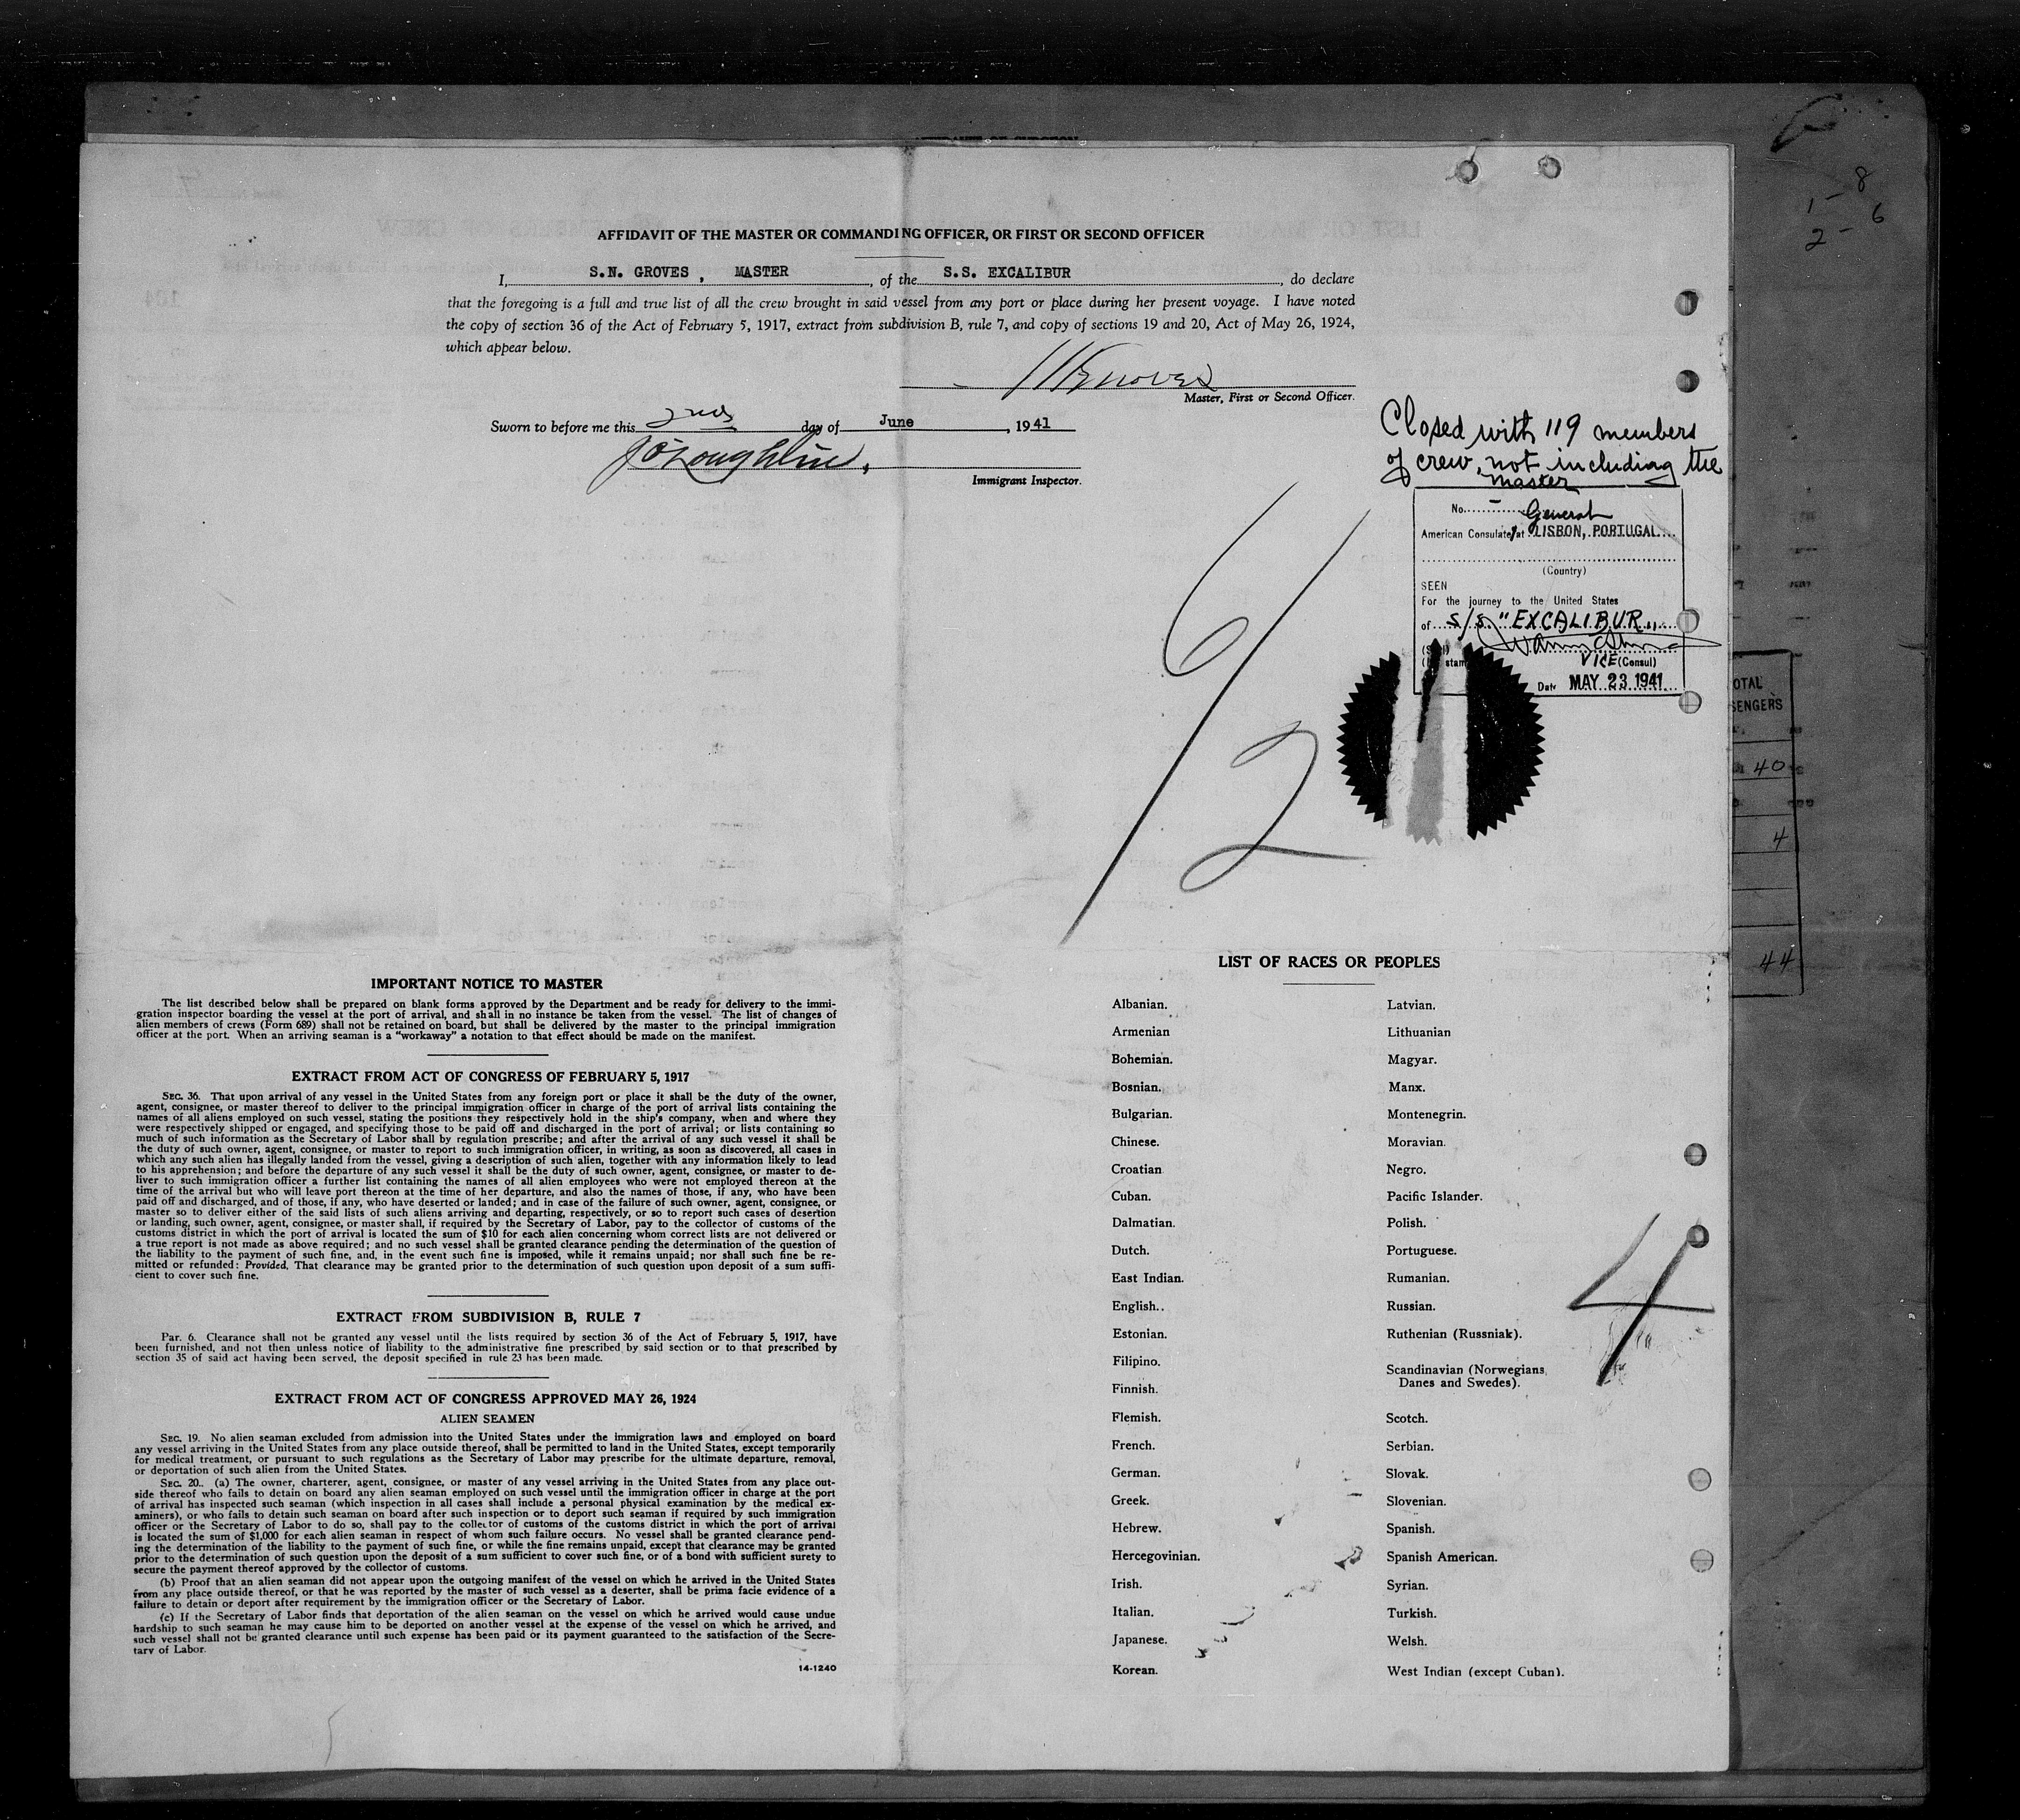 AFFIDAVIT OF SURGEON
8
1-
6
2-
AFFIDAVIT OF THE MASTER OR COMMANDING OFFICER, OR FIRST OR SECOND OFFICER
I, S.N. GROVES , MASTER , of the S.S. EXCALIBUR , do declare
that the foregoing is a full and true list of all the crew brought in said vessel from any port or place during her present voyage. I have noted
the copy of section 36 of the Act of February 5, 1917, extract from subdivision B, rule 7, and copy of sections 19 and 20, Act of May 26, 1924,
which appear below.
Groves
Master, First or Second Officer.
Sworn to before me this 2nd day of June , 1941
J O'Loughlin.
Immigrant Inspector.
Closed with 119 members
of crew, not including the
master
No. - General
American Consulate at LISBON, PORTUGAL
(Country)
SEEN
For the journey to the United States
of S/S "EXCALIBUR"
VICE (Consul)
Date MAY 23 1941
6/2
OTAL
SENGERS
40
4
44
IMPORTANT NOTICE TO MASTER
The list described below shall be prepared on blank forms approved by the Department and be ready for delivery to the immi-
gration inspector boarding the vessel at the port of arrival, and shall in no instance be taken from the vessel. The list of changes of
alien members of crews (Form 689) shall not be retained on board, but shall be delivered by the master to the principal immigration
officer at the port. When an arriving seaman is a "workaway" a notation to that effect should be made on the manifest.
EXTRACT FROM ACT OF CONGRESS OF FEBRUARY 5, 1917
SEC. 36. That upon arrival of any vessel in the United States from any foreign port or place it shall be the duty of the owner,
agent, consignee, or master thereof to deliver to the principal immigration officer in charge of the port of arrival lists containing the
names of all aliens employed on such vessel, stating the positions they respectively hold in the ship's company, when and where they
were respectively shipped or engaged, and specifying those to be paid off and discharged in the port of arrival; or lists containing so
much of such information as the Secretary of Labor shall by regulation prescribe; and after the arrival of any such vessel it shall be
the duty of such owner, agent, consignee, or master to report to such immigration officer, in writing, as soon as discovered, all cases in
which any such alien has illegally landed from the vessel, giving a description of such alien, together with any information likely to lead
to his apprehension; and before the departure of any such vessel it shall be the duty of such owner, agent, consignee, or master to de-
liver to such immigration officer a further list containing the names of all alien employees who were not employed thereon at the
time of the arrival but who will leave port thereon at the time of her departure, and also the names of those, if any, who have been
paid off and discharged, and of those, if any, who have deserted or landed; and in case of the failure of such owner, agent, consignee, or
master so to deliver either of the said lists of such aliens arriving and departing, respectively, or so to report such cases of desertion
or landing, such owner, agent, consignee, or master shall, if required by the Secretary of Labor, pay to the collector of customs of the
customs district in which the port of arrival is located the sum of $10 for each alien concerning whom correct lists are not delivered or
a true report is not made as above required; and no such vessel shall be granted clearance pending the determination of the question of
the liability to the payment of such fine, and, in the event such fine is imposed, while it remains unpaid; nor shall such fine be re-
mitted or refunded: Provided, That clearance may be granted prior to the determination of such question upon deposit of a sum suffi-
cient to cover such fine.
EXTRACT FROM SUBDIVISION B, RULE 7
Par. 6. Clearance shall not be granted any vessel until the lists required by section 36 of the Act of February 5, 1917, have
been furnished, and not then unless notice of liability to the administrative fine prescribed by said section or to that prescribed by
section 35 of said act having been served, the deposit specified in rule 23 has been made.
EXTRACT FROM ACT OF CONGRESS APPROVED MAY 26, 1924
ALIEN SEAMEN
SEC. 19. No alien seaman excluded from admission into the United States under the immigration laws and employed on board
any vessel arriving in the United States from any place outside thereof, shall be permitted to land in the United States, except temporarily
for medical treatment, or pursuant to such regulations as the Secretary of Labor may prescribe for the ultimate departure, removal,
or deportation of such alien from the United States.
SEC. 20.. (a) The owner, charterer, agent, consignee, or master of any vessel arriving in the United States from any place out-
side thereof who fails to detain on board any alien seaman employed on such vessel until the immigration officer in charge at the port
of arrival has inspected such seaman (which inspection in all cases shall include a personal physical examination by the medical ex-
aminers), or who fails to detain such seaman on board after such inspection or to deport such seaman if required by such immigration
officer or the Secretary of Labor to do so, shall pay to the collector of customs of the customs district in which the port of arrival
is located the sum of $1,000 for each alien seaman in respect of whom such failure occurs. No vessel shall be granted clearance pend-
ing the determination of the liability to the payment of such fine, or while the fine remains unpaid, except that clearance may be granted
prior to the determination of such question upon the deposit of a sum sufficient to cover such fine, or of a bond with sufficient surety to
secure the payment thereof approved by the collector of customs.
(b) Proof that an alien seaman did not appear upon the outgoing manifest of the vessel on which he arrived in the United States
from any place outside thereof, or that he was reported by the master of such vessel as a deserter, shall be prima facie evidence of a
failure to detain or deport after requirement by the immigration officer or the Secretary of Labor.
(c) If the Secretary of Labor finds that deportation of the alien seaman on the vessel on which he arrived would cause undue
hardship to such seaman he may cause him to be deported on another vessel at the expense of the vessel on which he arrived, and
such vessel shall not be granted clearance until such expense has been paid or its payment guaranteed to the satisfaction of the Secre-
tary of Labor.
14-1240
LIST OF RACES OR PEOPLES
Albanian.
Armenian
Bohemian.
Bosnian.
Bulgarian.
Chinese.
Croatian
Cuban.
Dalmatian.
Dutch.
East Indian.
English.
Estonian.
Filipino.
Finnish.
Flemish.
French.
German.
Greek.
Hebrew.
Hercegovinian.
Irish.
Italian.
Japanese.
Korean.
Latvian.
Lithuanian
Magyar.
Manx.
Montenegrin.
Moravian.
Negro.
Pacific Islander.
Polish.
Portuguese.
Rumanian.
Russian.
Ruthenian (Russniak).
Scandinavian (Norwegians,
Danes and Swedes).
Scotch.
Serbian.
Slovak.
Slovenian.
Spanish.
Spanish American.
Syrian.
Turkish.
Welsh.
West Indian (except Cuban).
4